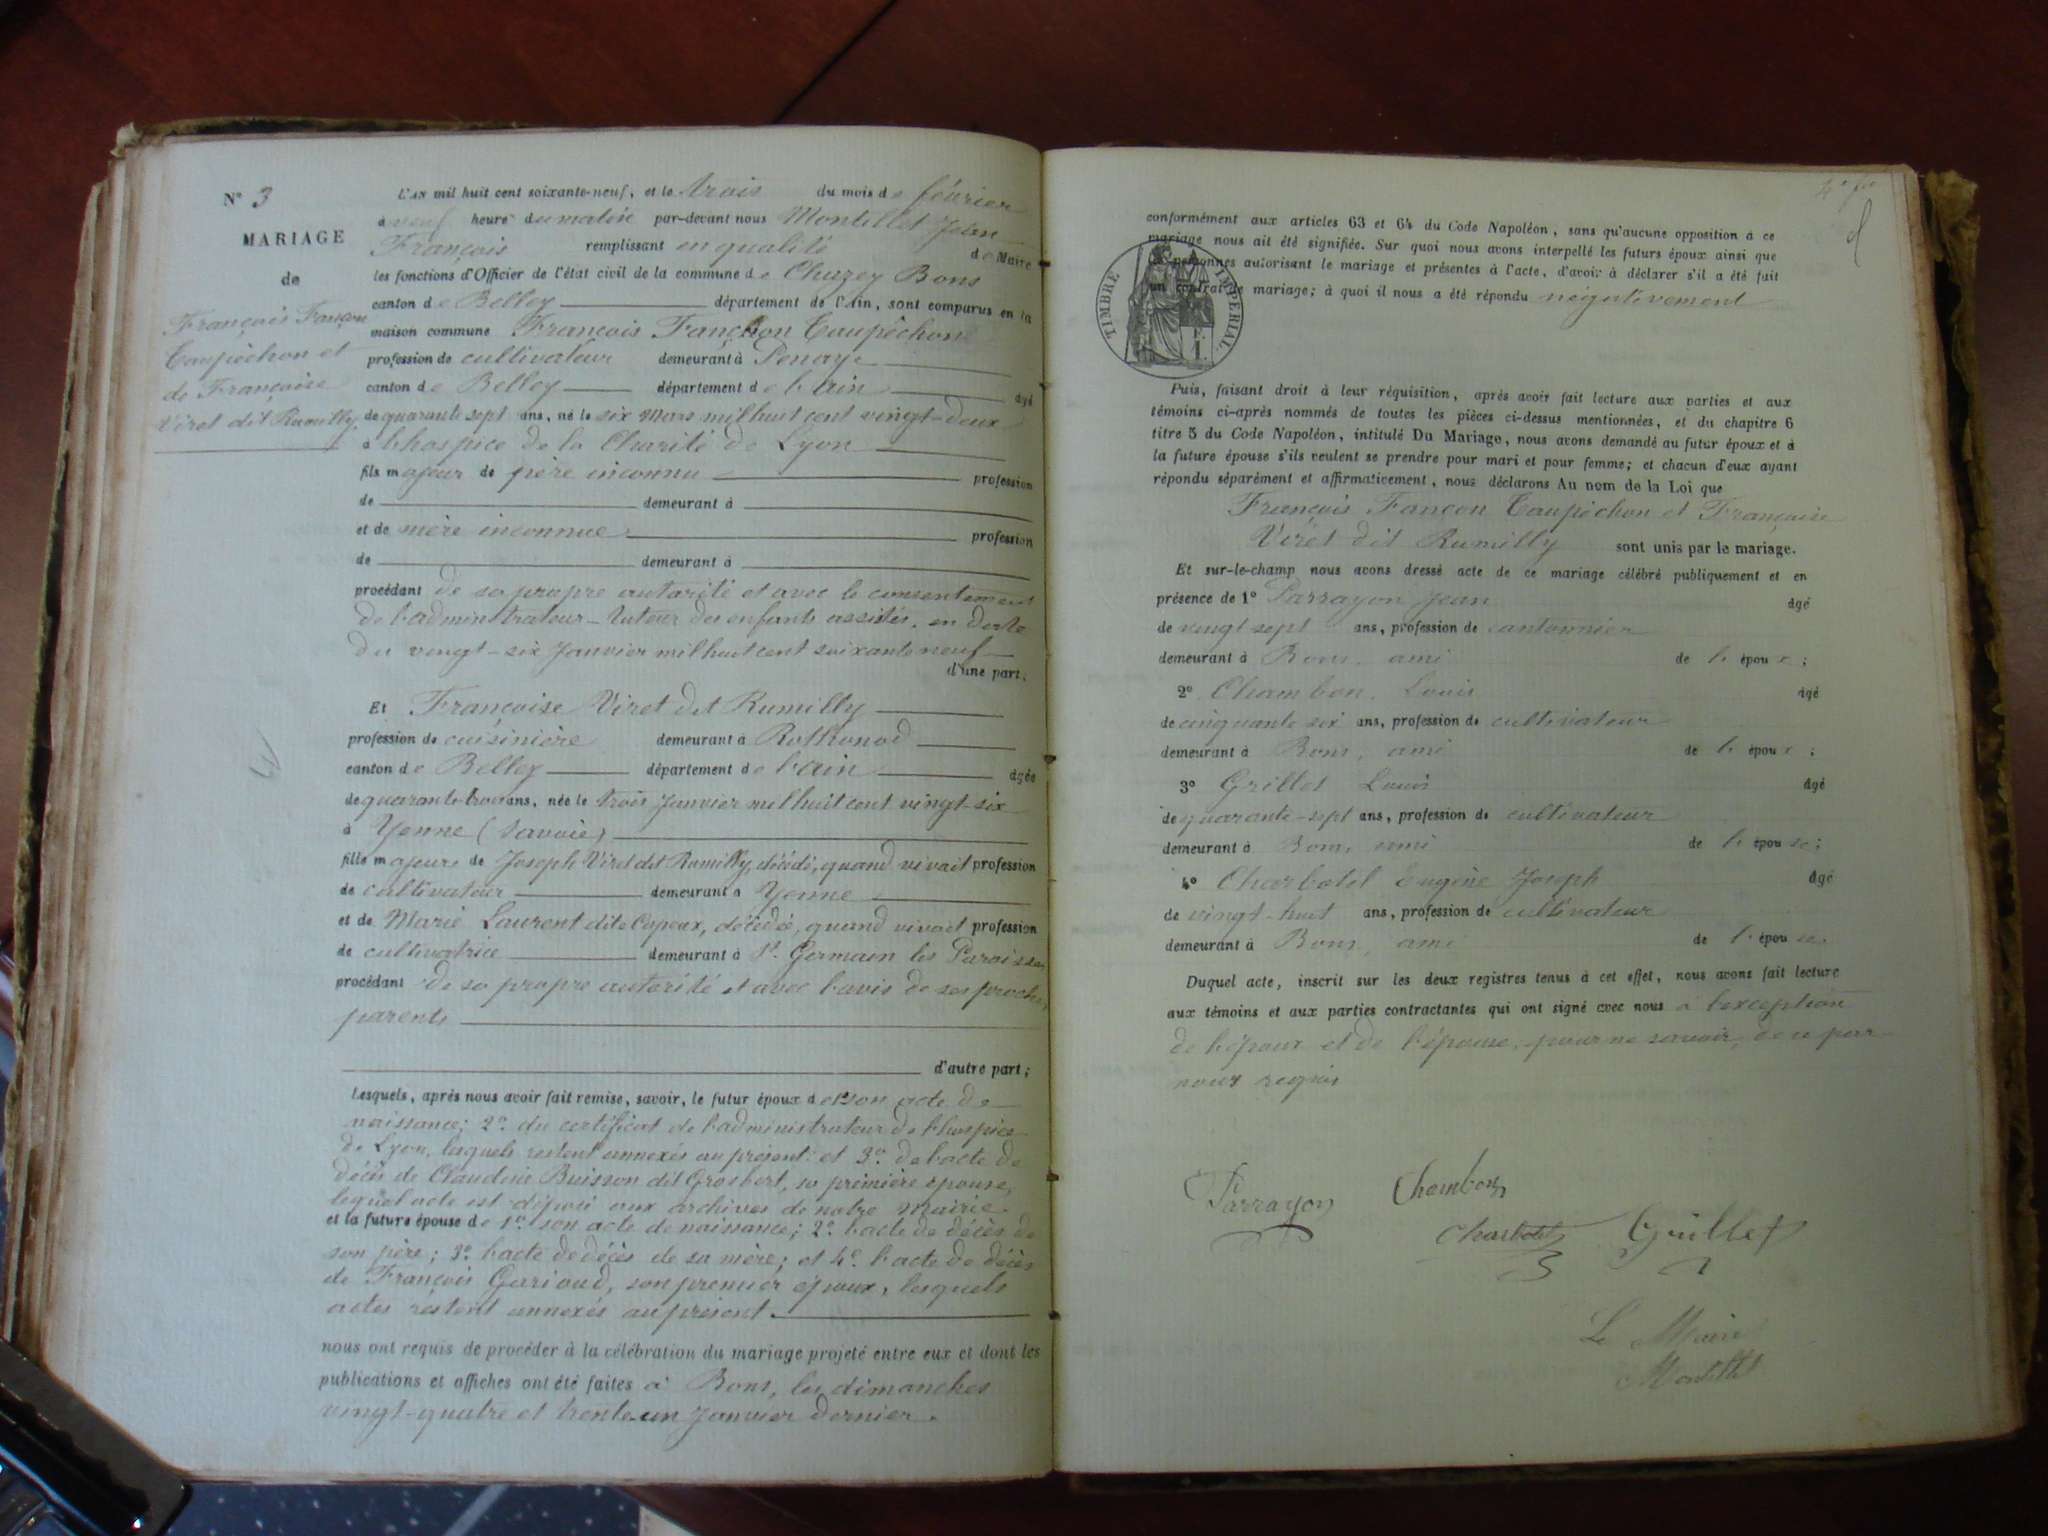 N° 3
MARIAGE
de
François Fançon
Taupêchon et
de Françoise
Viret dit Rumilly
L'AN mil huit cent soixante-neuf, et le trois du mois de février
à neuf heure du matin par-devant nous Montillet Jean
François remplissant en qualité de Maire
les fonctions d'Officier de l'état civil de la commune de Chazey Bons
canton de Belley département de l'Ain, sont comparus en la
maison commune François Fançhon Taupêchon
profession de cultivateur demeurant à
canton de Belley département de l'Ain âgé
de quarante sept ans, né le six Mars mil huit cent vingt-deux
à l'hospice de la Charité de Lyon
fils majeur de père inconnu profession
de demeurant à
et de mère inconnue profession
de demeurant à
procédant de sa propre autorité et avec le consentement
de l'administrateur-tuteur des enfants assistés, en date
du vingt-six Janvier mil huit cent soixante neuf
d'une part;
Et Françoise Viret dit Rumilly
profession de cuisinière demeurant à Rothonod
canton de Belley département de l'Ain âgée
de quarante-trois ans, née le trois Janvier mil huit cent vingt-six
à Yenne (Savoie)
fille majeure de Joseph Viret dit Rumilly, décédé, quand vivait profession
de cultivateur demeurant à Yenne
et de Marie Laurent dite Copeux, décédée, quand vivait profession
de cultivatrice demeurant à St. Germain les Paroisses
procédant de sa propre autorité et avec l'avis de ses proches
parents
d'autre part;
Lesquels, après nous avoir fait remise, savoir, le futur époux de 1° son acte de
naissance; 2° du certificat de l'administrateur de l'hospice
de Lyon, lesquels restent annexés au présent: et 3° de l'acte de
décès de Claudine Buisson dit Grosbert, sa première épouse,
lequel acte est déposé aux archives de notre Mairie.
et la future épouse de 1° son acte de naissance; 2° l'acte de décès de
son père; 3° l'acte de décès de sa mère; et 4° l'acte de décès
de François Garioud, son premier époux, lesquels
actes restent annexés au présent.
nous ont requis de procéder à la célébration du mariage projeté entre eux et dont les
publications et affiches ont été faites à Bons, les dimanches
vingt-quatre et trente-un Janvier dernier.
conformément aux articles 63 et 64 du Code Napoléon, sans qu'aucune opposition à ce
mariage nous ait été signifiée. Sur quoi nous avons interpellé les futurs époux ainsi que
les personnes autorisant le mariage et présentes à l'acte, d'avoir à déclarer s'il a été fait
un contrat de mariage; à quoi il nous a été répondu négativement
TIMBRE IMPERIAL
Puis, faisant droit à leur réquisition, après avoir fait lecture aux parties et aux
témoins ci-après nommés de toutes les pièces ci-dessus mentionnées, et du chapitre 6
titre 5 du Code Napoléon, intitulé Du Mariage, nous avons demandé au futur époux et à
la future épouse s'ils veulent se prendre pour mari et pour femme; et chacun d'eux ayant
répondu séparément et affirmativement, nous déclarons Au nom de la Loi que
François Fançon Taupêchon et Françoise
Viret dit Rumilly sont unis par le mariage.
Et sur-le-champ nous avons dressé acte de ce mariage célébré publiquement et en
présence de 1° Parrayon Jean âgé
de vingt-sept ans, profession de cantonnier
demeurant à Bons, ami de l'époux;
2° Chambon, Louis âgé
de cinquante six ans, profession de cultivateur
demeurant à Bons, ami de l'époux;
3° Grillet Louis âgé
de quarante-sept ans, profession de cultivateur
demeurant à Bons, ami de l'épouse;
4° Charbotel Eugène Joseph âgé
de vingt-huit ans, profession de cultivateur
demeurant à Bons, ami de l'épouse.
Duquel acte, inscrit sur les deux registres tenus à cet effet, nous avons fait lecture
aux témoins et aux parties contractantes qui ont signé avec nous à l'exception
de l'époux et de l'épouse, pour ne savoir, de ce par
nous requis
Parrayon Chambon
Charbotel Grillet
Le Maire
Montillet